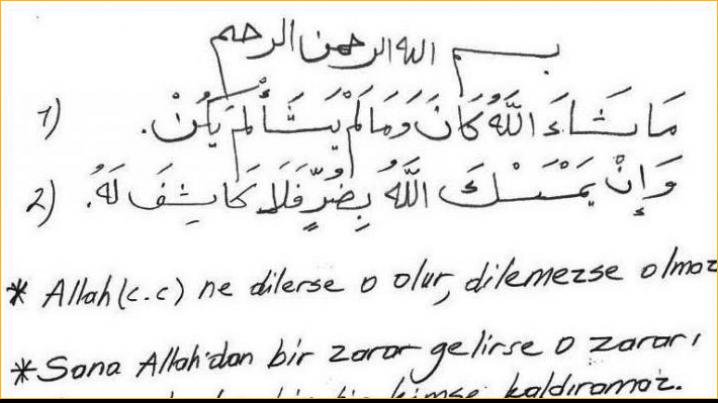 بسم الله الرحمن الرحيم
1) مَا شَاءَ اللَّهُ كَانَ وَمَا لَمْ يَشَأْ لَمْ يَكُنْ.
2) وَإِنْ يَمْسَسْكَ اللَّهُ بِضُرٍّ فَلَا كَاشِفَ لَهُ.
* Allah (c.c) ne dilerse o olur, dilemezse olmaz
* Sana Allah'dan bir zarar gelirse o zararı
kimse kaldıramaz.